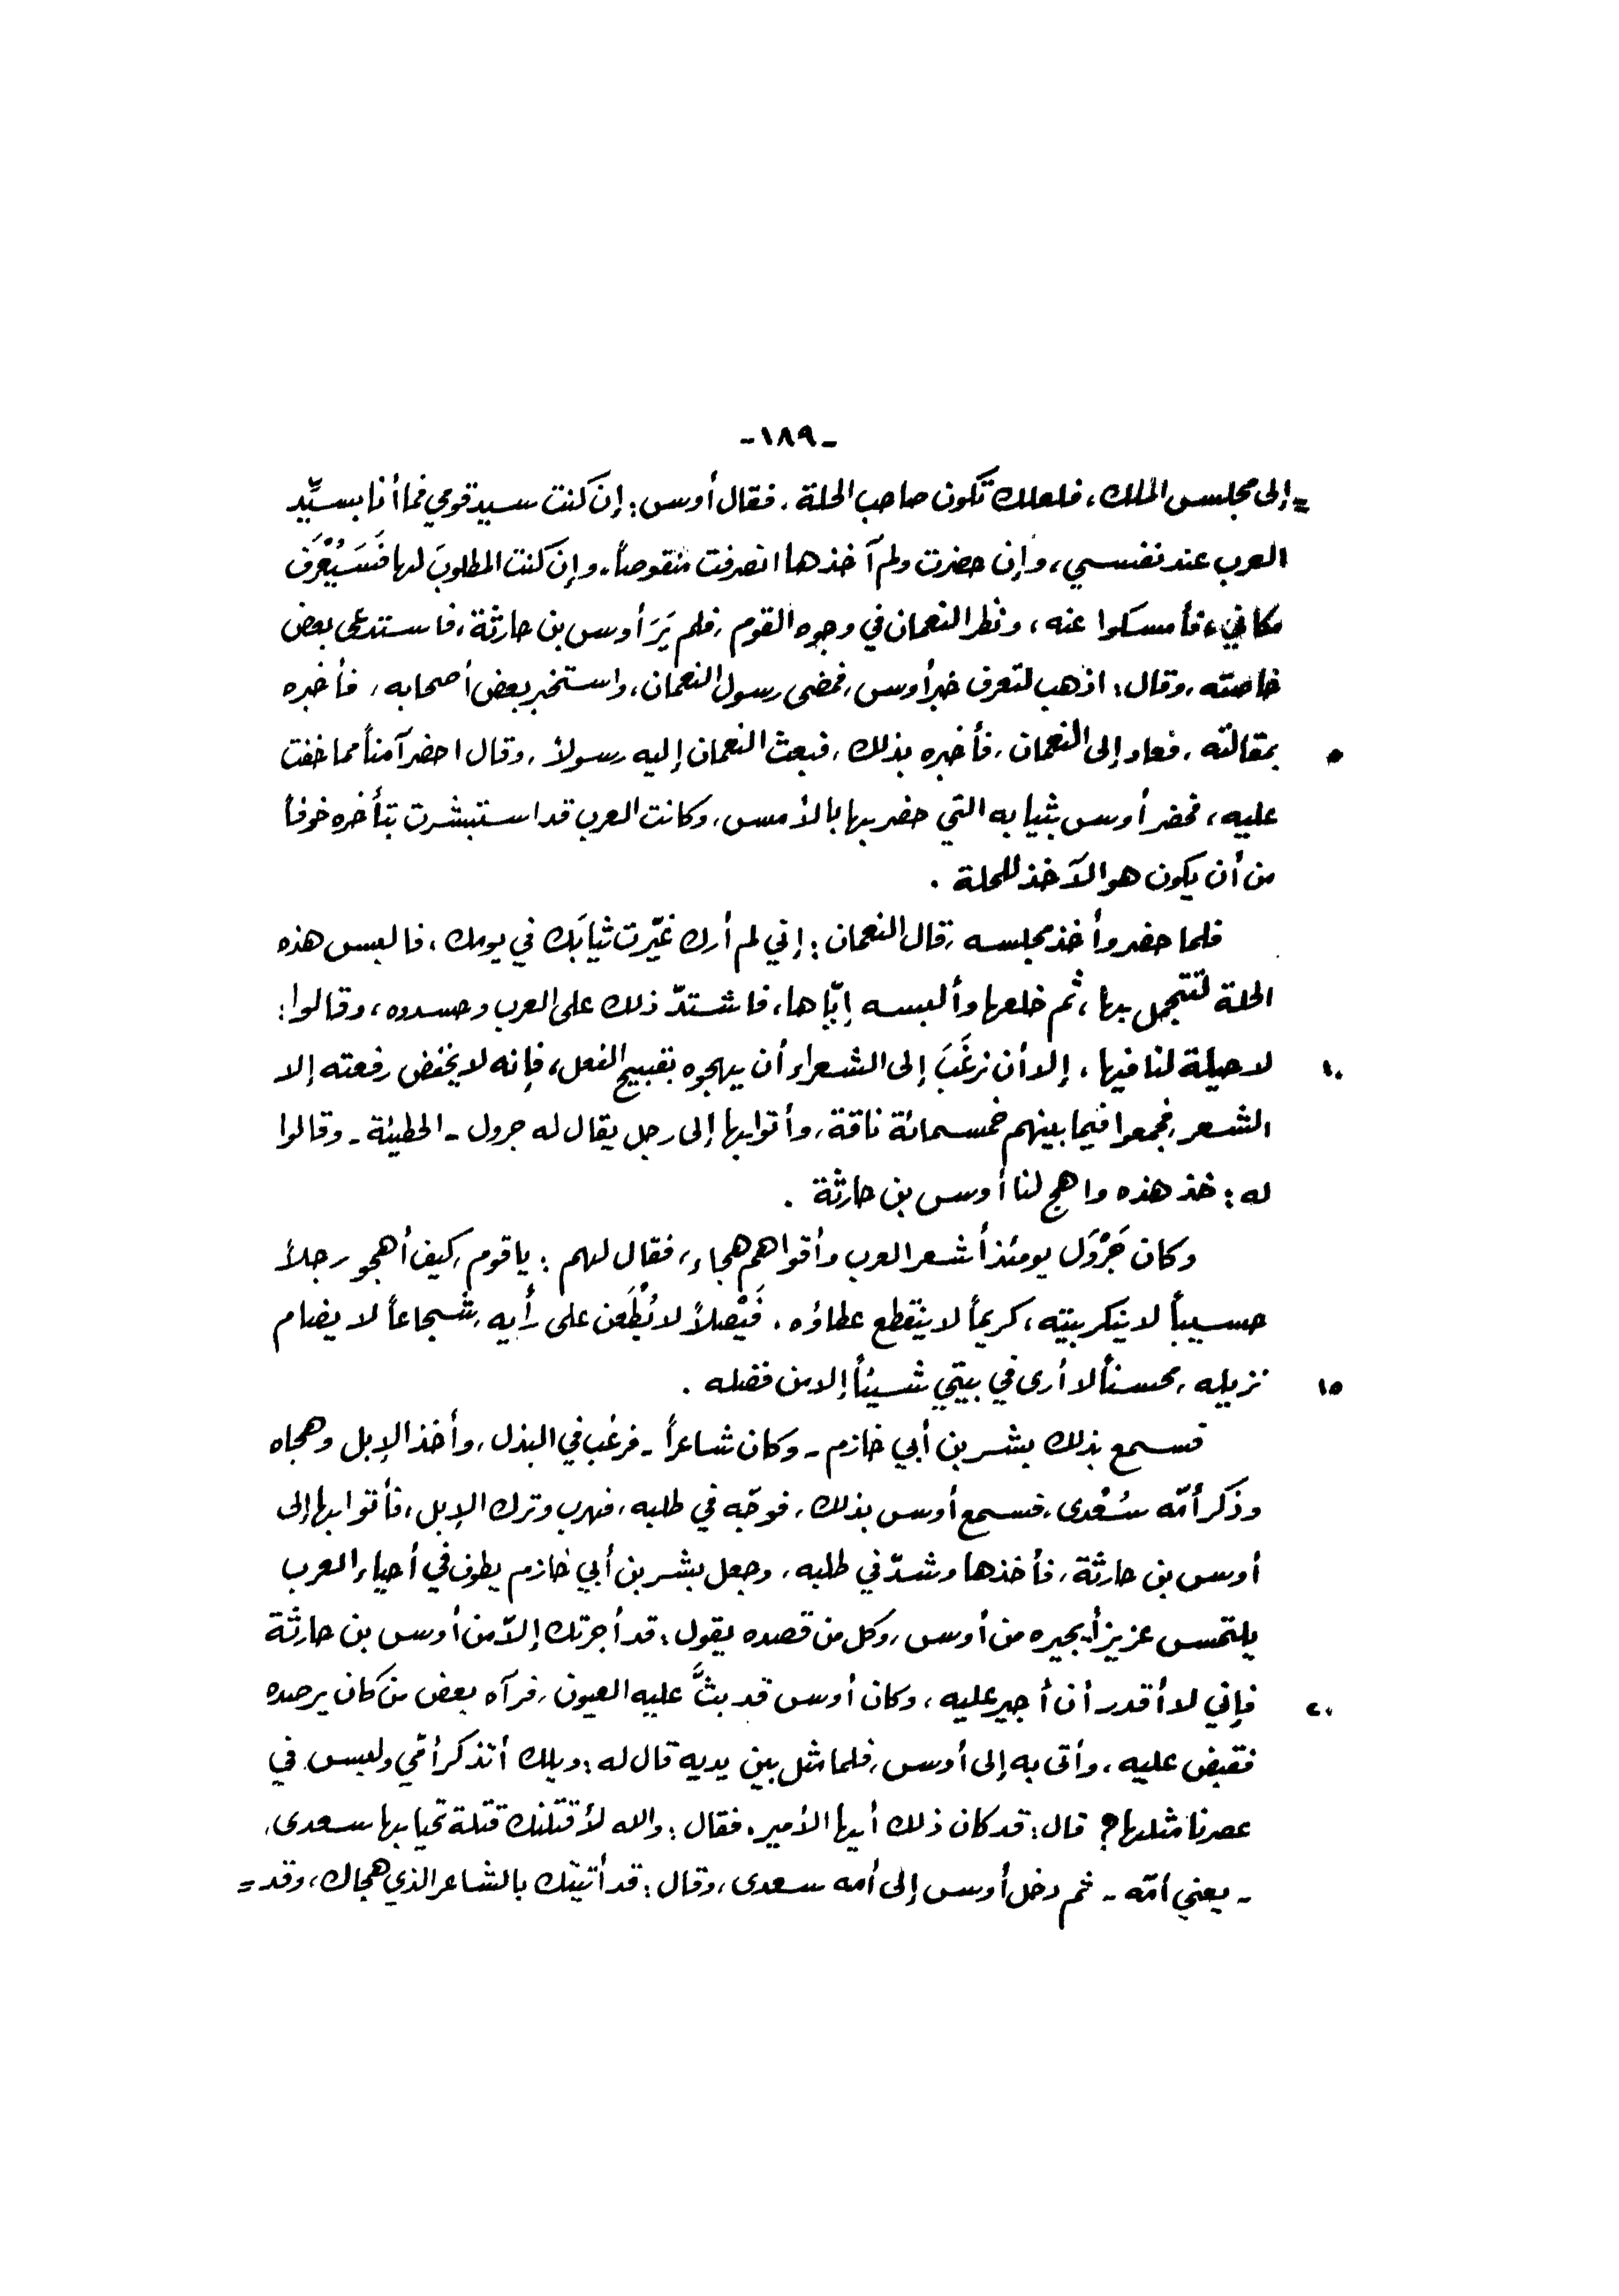 -١٨٩-
= إلى مجلس الملك، فلعلك تكون صاحب الحلة. فقال أوس: إن كنت سيد قومي فما أنا بسيِّد
العرب عند نفسي، وإن حضرت ولم آخذها انصرفت منقوصاً. وإن كنت المطلوبَ لها فَسَيُعْرَف
مكاني، فأمسكوا عنه، ونظر النعمان في وجوه القوم، فلم يَرَ أوس بن حارثة، فاستدعى بعض
خاصته، وقال: اذهب لتعرف خبر أوس، فمضى رسول النعمان، واستخبر بعض أصحابه، فأخبره
٥ بمقالته، فعاد إلى النعمان، فأخبره بذلك، فبعث النعمان إليه رسولاً، وقال احضر آمناً مما خفت
عليه، فحضر أوس بثيابه التي حضر بها بالأمس، وكانت العرب قد استبشرت بتأخره خوفاً
من أن يكون هو الآخذ للحلة.
فلما حضر وأخذ مجلسه، قال النعمان: إني لم أرك غيّرت ثيابَك في يومك، فالبس هذه
الحلة لتتجمل بها، ثم خلعها وألبسه إيّاها، فاشتدّ ذلك على العرب وحسدوه، وقالوا:
١٠ لا حيلة لنا فيها، إلا أن نرغَبَ إلى الشعراء أن يهجوه بقبيح الفعل، فإنه لا يخفض رفعته إلا
الشعر، فجمعوا فيما بينهم خمسمائة ناقة، وأتوا بها إلى رجل يقال له جرول - الحطيئة - وقالوا
له: خذ هذه واهج لنا أوس بن حارثة.
وكان جَرْوَل يومئذ أشعر العرب وأقواهم هجاء، فقال لهم: يا قوم، كيف أهجو رجلاً
حسيباً لا ينكر بيته، كريماً لا ينقطع عطاؤه. فَيْصلاً لا يُطْعَن على رأيه، شجاعاً لا يضام
١٥ نزيله، محسناً لا أرى في بيتي شيئاً إلا من فضله.
فسمع بذلك بشر بن أبي خازم - وكان شاعراً - فرغب في البذل، وأخذ الإبل وهجاه
وذكر أمّه سُعْدى، فسمع أوس بذلك، فوجّه في طلبه، فهرب وترك الإبل، فأتوا بها إلى
أوس بن حارثة، فأخذها وشدّ في طلبه، وجعل بشر بن أبي خازم يطوف في أحياء العرب
يلتمس عزيزاً يجيره من أوس، وكل من قصده يقول: قد أجرتك إلاّ من أوس بن حارثة
٢٠ فإني لا أقدر أن أجير عليه، وكان أوس قد بثَّ عليه العيون، فرآه بعض من كان يرصده
فقبض عليه، وأتى به إلى أوس، فلما مثل بين يديه قال له: ويلك أتذكر أمّي وليس في
عصرنا مثلها؟ قال: قد كان ذلك أيها الأمير. فقال: والله لأقتلنك قتلة تحيا بها سعدى،
- يعني أمّه - ثم دخل أوس إلى أمه سعدى، وقال: قد أتيتك بالشاعر الذي هجاك، وقد =